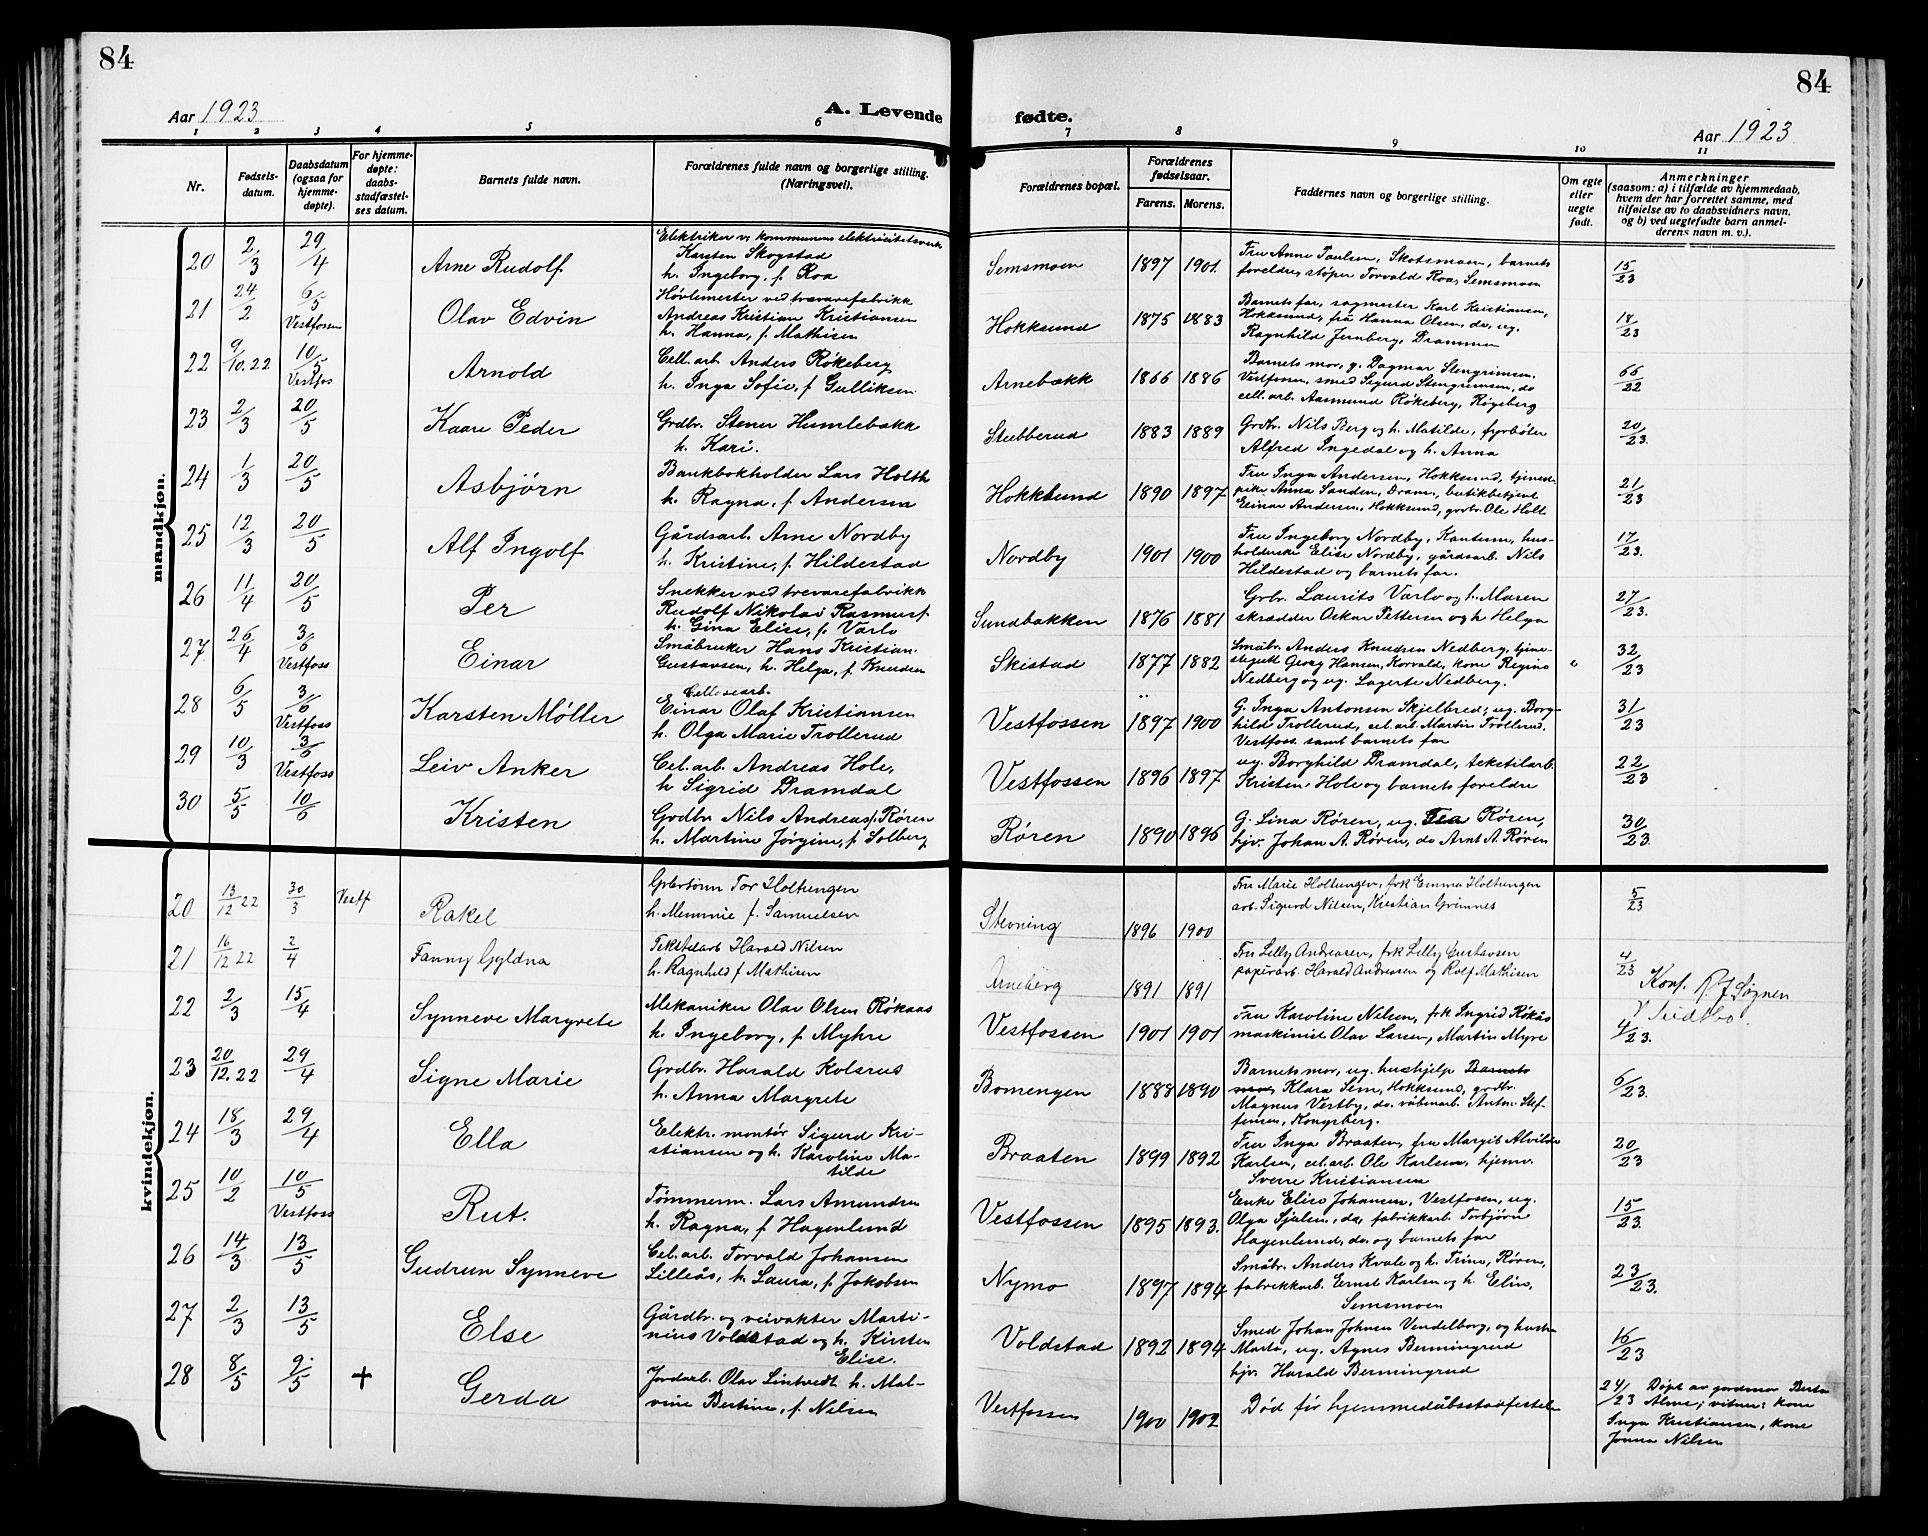 84
84
Aar 1923
A. Levende
fødte.
Aar 1923
1 2 3 4 5 6 7 8 9 10 11
Nr.
Fødsels-
datum.
Daabsdatum
(ogsaa for
hjemme-
døpte).
For hjemme-
døpte:
daabs-
stadfæstel-
ses datum.
Barnets fulde navn.
Forældrenes fulde navn og borgerlige stilling.
(Næringsvei).
Forældrenes bopæl.
Forældrenes
fødselsaar.
Farens. Morens.
Faddernes navn og borgerlige stilling.
Om egte
eller
uegte
født.
Anmerkninger
(saasom: a) i tilfælde av hjemmedaab,
hvem der har forrettet samme, med
tilføielse av to daabsvidners navn,
og b) ved uegtefødte barn anmel-
derens navn m. v.).
mandkjøn.
20 2/3 29/4 Arne Rudolf
Elektriker v. kommunens elektricitetsverk
Karsten Skogstad
h. Ingeborg, f. Roa
Semsmoen 1897 1901.
Fru Anne Paulsen, Skotsmoen, barnets
foreldre, støper Torvald Roa, Semsmoen
15/23
21 24/2 6/5 Vestfossen Olav Edvin
Høvlemester ved trevarefabrikk
Andreas Kristian Kristiansen
h. Hanna, f. Mathisen
Hokksund 1875 1883
Barnets far, sagmester Karl Kristiansen,
Hokksund, fru Hanna Olsen, do, ug.
Ragnhild Jernberg, Drammen
18/23
22 9/10.22 10/5 Vestfos Arnold
Cell. arb. Anders Røkeberg
h. Inga Sofie, f. Gulliksen
Arnebakk 1866 1886
Barnets mor, g. Dagmar Stengrimsen,
Vestfossen, smed Sigurd Stengrimsen, do
cell. arb. Aasmund Røkeberg, Røgeberg
66/22
23 2/3 20/5 Kaare Peder
Grdbr. Stener Humlebakk
h. Kari.
Stubberud 1883 1889
Grdbr. Nils Berg og h. Matilde, fyrbøter
Alfred Ingedal og h. Anna
20/23.
24 1/3 20/5 Asbjørn
Bankbokholder Lars Holth
h. Ragna, f. Andersen
Hokksund 1890 1897
Fru Inga Andersen, Hokksund, tjenest-
pike Anna Sanden, Dram., butikbetjent
Einar Andersen, Hokksund, grdbr. Ole Holt
21/23
25 12/3 20/5 Alf Ingolf
Gårdsarb. Arne Nordby
h. Kristine, f. Hildestad
Nordby 1901 1900
Fru Ingeborg Nordby, hus-
holderske Elise Nordby, gårdsarb. Nils
Hildestad og barnets far.
17/23.
26 11/4 20/5 Per
Snekker ved trevarefabrikk
Rudolf Nikolai Rasmus.
h. Gina Elise, f. Varlo
Sundbakken 1876 1881
Grbr. Laurits Varlo og h. Maren
skrædder Oskar Pettersen og h. Helga
27/23.
27 26/4 3/6 Vestfoss Einar
Småbruker Hans Kristian
Gustavsen, h. Helga, f. Knudsen
Skistad 1877 1882
Småbr. Anders Knudsen Nedberg, tjene-
stegutt Georg Hansen, Korvald, kone Regine
Nedberg og ug. Lagerte Nedberg.
32/23
28 6/5 3/6 Vestfoss Karsten Møller
Cellosearb.
Einar Olaf Kristiansen
h. Olga Marie Trollerud
Vestfossen 1897 1900
G. Inga Antonsen Skjelbred, ug. Borg-
hild Trollerud, cel. arb. Martin Trollerud,
Vestfoss. samt barnets far
31/23
29 10/3 3/6 Vestfoss Leiv Anker
Cel. arb. Andreas Hole,
h Sigrid Dramdal
Vestfossen 1896 1897
ug. Borghild Dramdal, tekstilarb.
Kristen Hole og barnets foreldre
22/23
30 5/5 10/6 Kristen
Grdbr. Nils Andreas J. Røren
h. Martine Jørgine, f. Solberg
Røren 1890 1896
G. Lina Røren, ug. Tea Røren,
hjv. Johan A. Røren, do Arnt A. Røren
30/23.
kvindekjøn.
20 13/12 22 30/3 Vestf Rakel
Tor Holtungen
h. Memmie f. Samuelsen
Stevning 1896 1900
Fru Marie Holtungen, frk Emma Holtungen
arb. Sigurd Nilsen, Kristian Grimnes
5/23
21 16/12 22 2/4 Fanny Gyldna
Tekstilarb Harald Nilsen
h. Ragnhild f Mathisen
Arneberg 1891 1891
Fru Lilly Andreasen, frk Lilly Gustavsen
papirarb. Harald Andreasen og Rolf Mathisen
4/23
Konf. R. f. Søgnen
22 2/3 15/4 Synneve Margrete
Mekaniker Olav Olsen Røkaas
h. Ingeborg, f Myhre
Vestfossen 1901 1901
Fru Karoline Nilsen, frk Ingrid Røkås
maskinist Olav Larsen, Martin Myre
4/23.
23 20/12.22 29/4 Signe Marie
Grdbr. Harald Kolsrud
h. Anna Margrete
Bomengen 1888 1890
Barnets mor, ug. hushjelp Barnets
mor, Klara Sem, Hokksund, grdbr.
Magnus Vestby, do. våbenarb. Anton Stef-
fensen, Kongsberg.
6/23.
24 18/3 29/4 Ella
Elektr. montør Sigurd Kri-
stiansen og h. Karoline Ma-
tilde
Braaten 1899 1892
Fru Inga Braaten, fru Margit Alvilde
Karlsen, cel. arb. Ole Karlsen, hjemv.
Sverre Kristiansen
20/23
25 10/2 10/5 Vestfoss Rut.
Tømmerm. Lars Amundsen
h. Ragna, f Hagenlund
Vestfossen 1895 1893.
Enke Elise Johansen, Vestfossen, ug.
Olga Sjulsen, do, fabrikkarb. Torbjørn
Hagenlund, do. og barnets far
15/23.
26 14/3 13/5 Gudrun Synneve
Cel. arb. Torvald Johansen
Lilleås, h. Laura, f. Jakobsen
Nymo 1897 1894
Småbr. Anders Kvale og h. Trine, Røren,
fabrikkarb. Ernst Karlsen og h. Elise,
Semsmoen
23/23.
27 2/3 13/5 Else
Gårdbr. og veivokter Marti-
nius Voldstad og h. Kirsten
Elise.
Voldstad 1892 1894
Smed Johan Johnsen Vendelborg, og hustru
Marta, ug. Agnes Bermingrud
hjv. Harald Bermingrud
16/23
28 8/5 9/5 + Gerda
Jordarb. Olav Lintvedt h. Mal-
vine Bertine, f. Nilsen
Vestfossen 1900 1902
Død før hjemmedåbsstadfestelse
24/23 Døpt av jordmor Berta
Alme; vitner: kone
Inga Kristiansen, kone
Jonna Nilsen